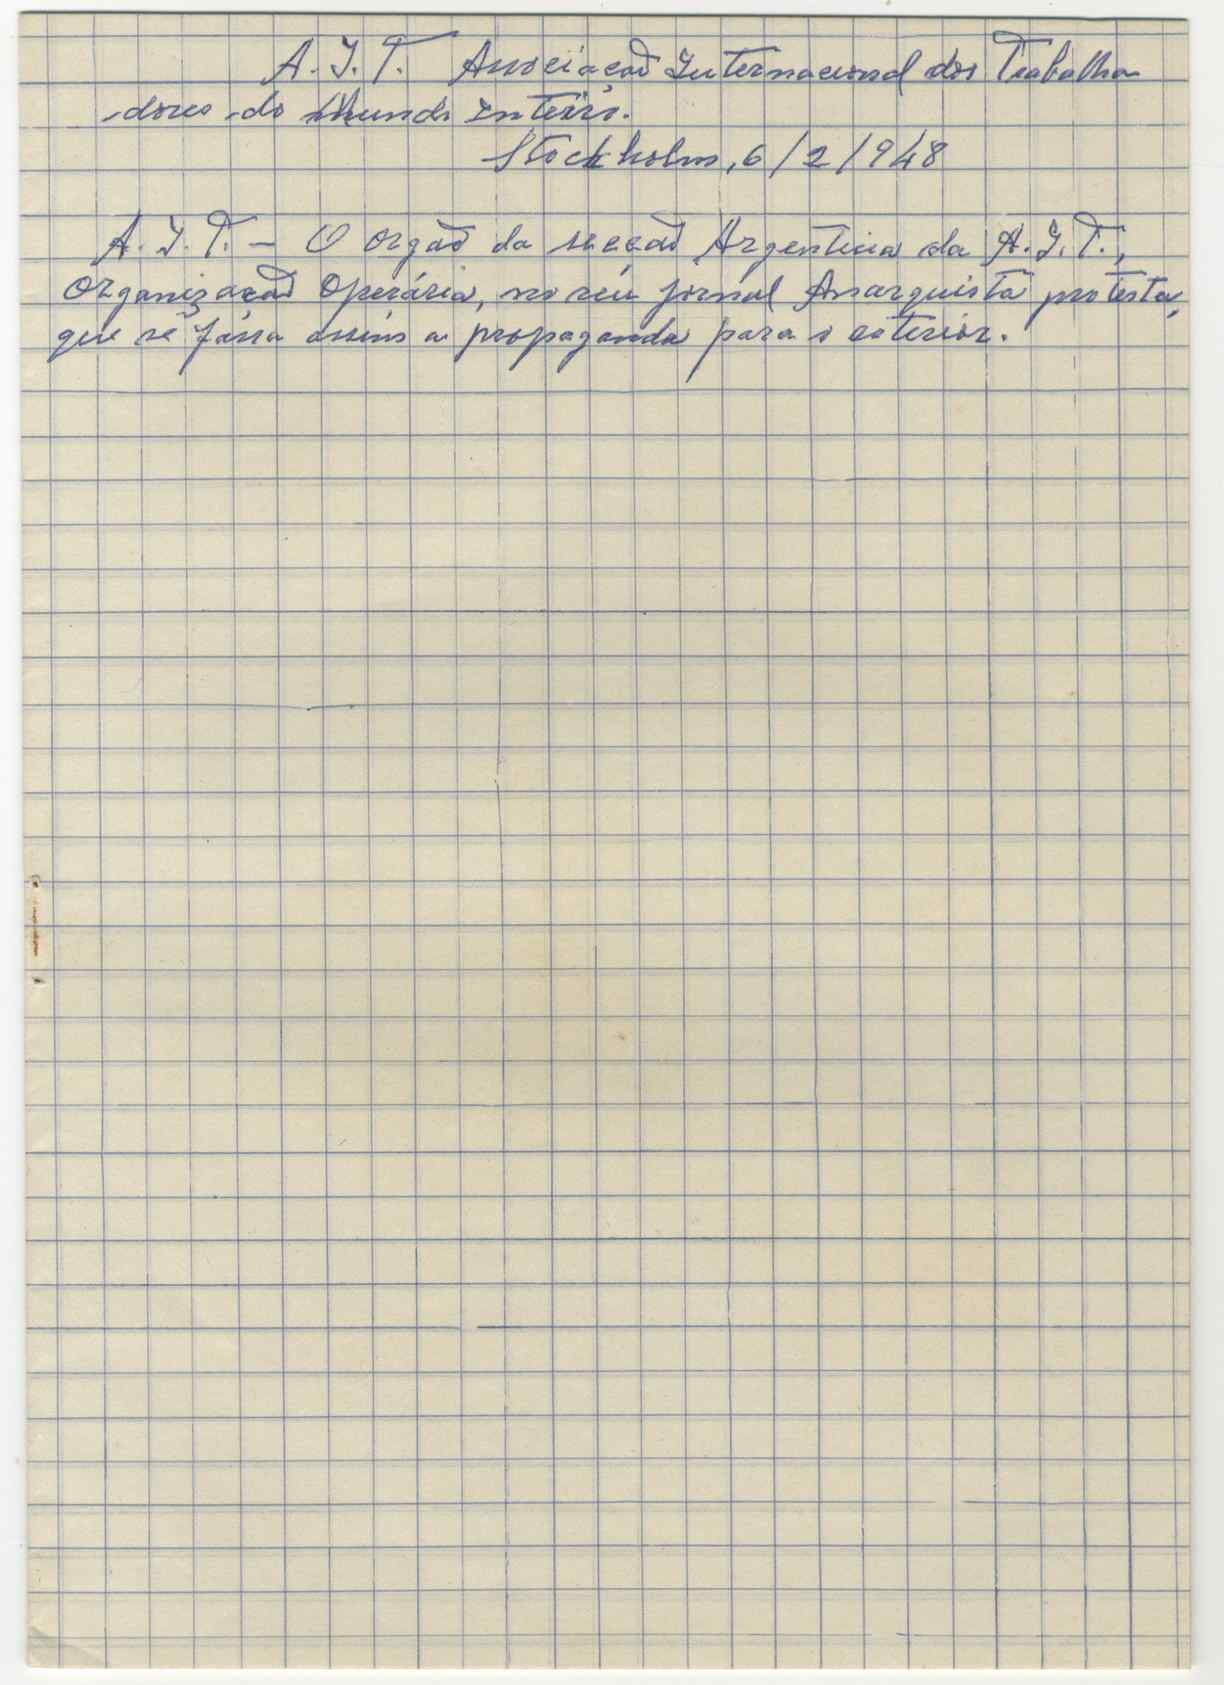 A. I. T. Associação Internacional dos Trabalha
-dores do Mundo Inteiro.
Stockholm, 6/2/948
A. I. T. - O orgaõ da secçaõ Argentina da A. I. T.,
Organizaçaõ Operária, no seu jornal Anarquista protesta,
que se fássa assim a propaganda para o exterior.